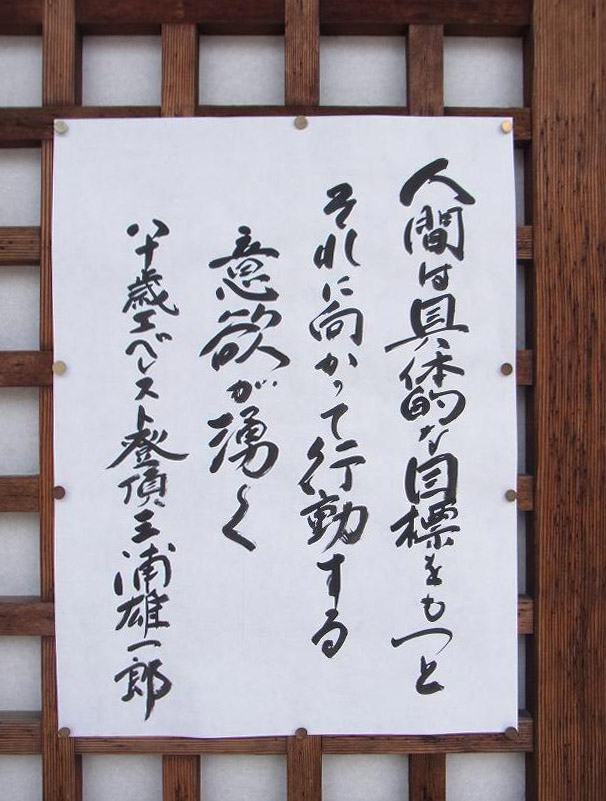 人間は具体的な目標をもつと
それに向かって行動する
意欲が湧く
八十歳エベレスト登頂三浦雄一郎